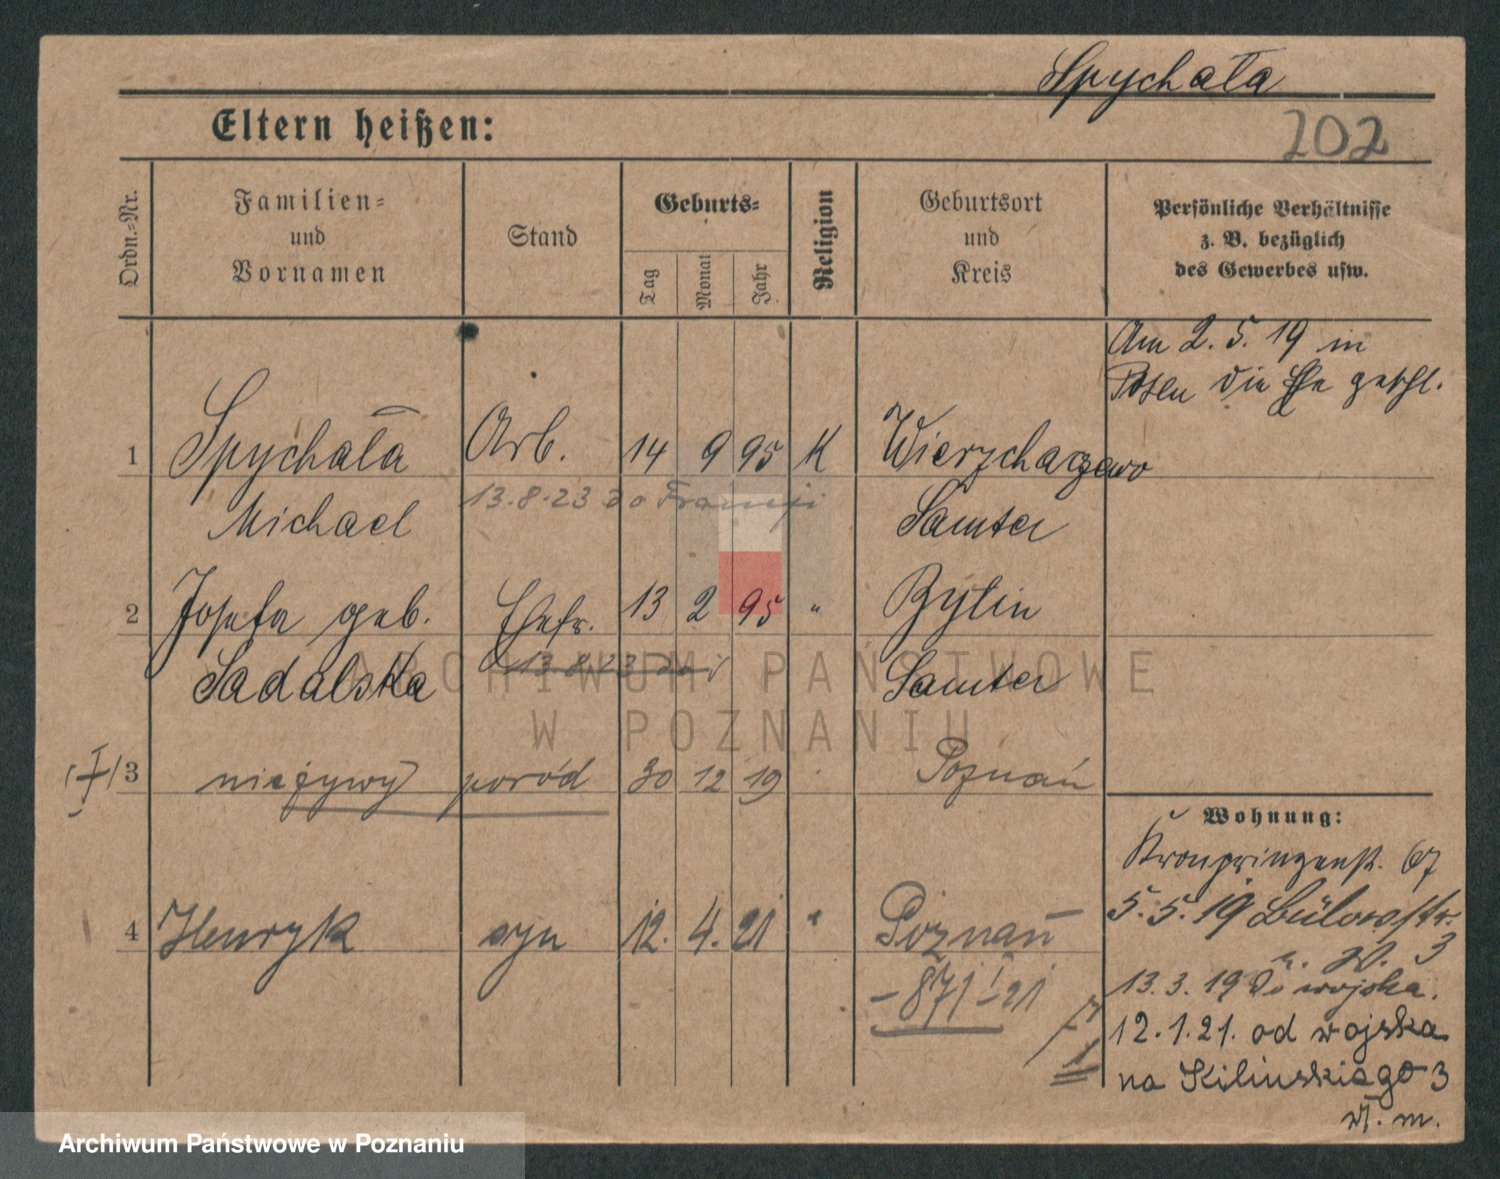 Spychała
202
Eltern heißen:
Ordn.-Nr.
Familien-
und
Vornamen
Stand
Geburts-
Tag
Monat
Jahr
Religion
Geburtsort
und
Kreis
Persönliche Verhältnisse
z. B. bezüglich
des Gewerbes usw.
Am 2. 5. 19 in
Posen die Ehe geschl.
1 Spychała Arb. 14 9 95 K Wierzchaczewo
13.8.23 do Francji
Michael Samter
2 Josefa geb. Ehefr. 13 2 95 " Bytin
13 8 23
Sadalska Samter
3 nieżywy poród 30 12 19 Poznań
Wohnung:
Kronprinzenst. 67
5. 5. 19 Bülowstr.
W. 3
4 Henryk syn 12. 4. 21 " Poznań
13. 3. 19 do wojska.
– 871 I – 21
12. 1. 21. od wojska
na Kilinskiego 3
w. m.
ARCHIWUM PAŃSTWOWE
W POZNANIU
Archiwum Państwowe w Poznaniu